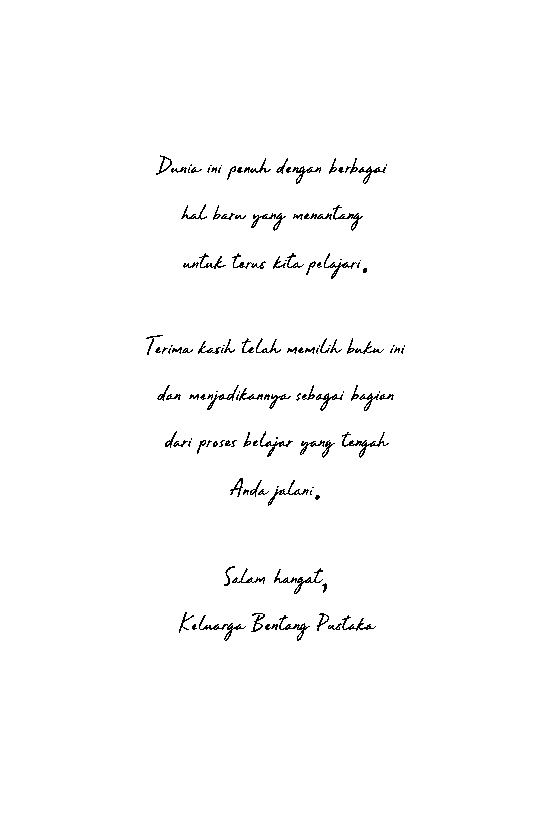 Dunia ini penuh dengan berbagai
hal baru yang menantang
untuk terus kita pelajari.
Terima kasih telah memilih buku ini
dan menjadikannya sebagai bagian
dari proses belajar yang tengah
Anda jalani.
Salam hangat,
Keluarga Bentang Pustaka